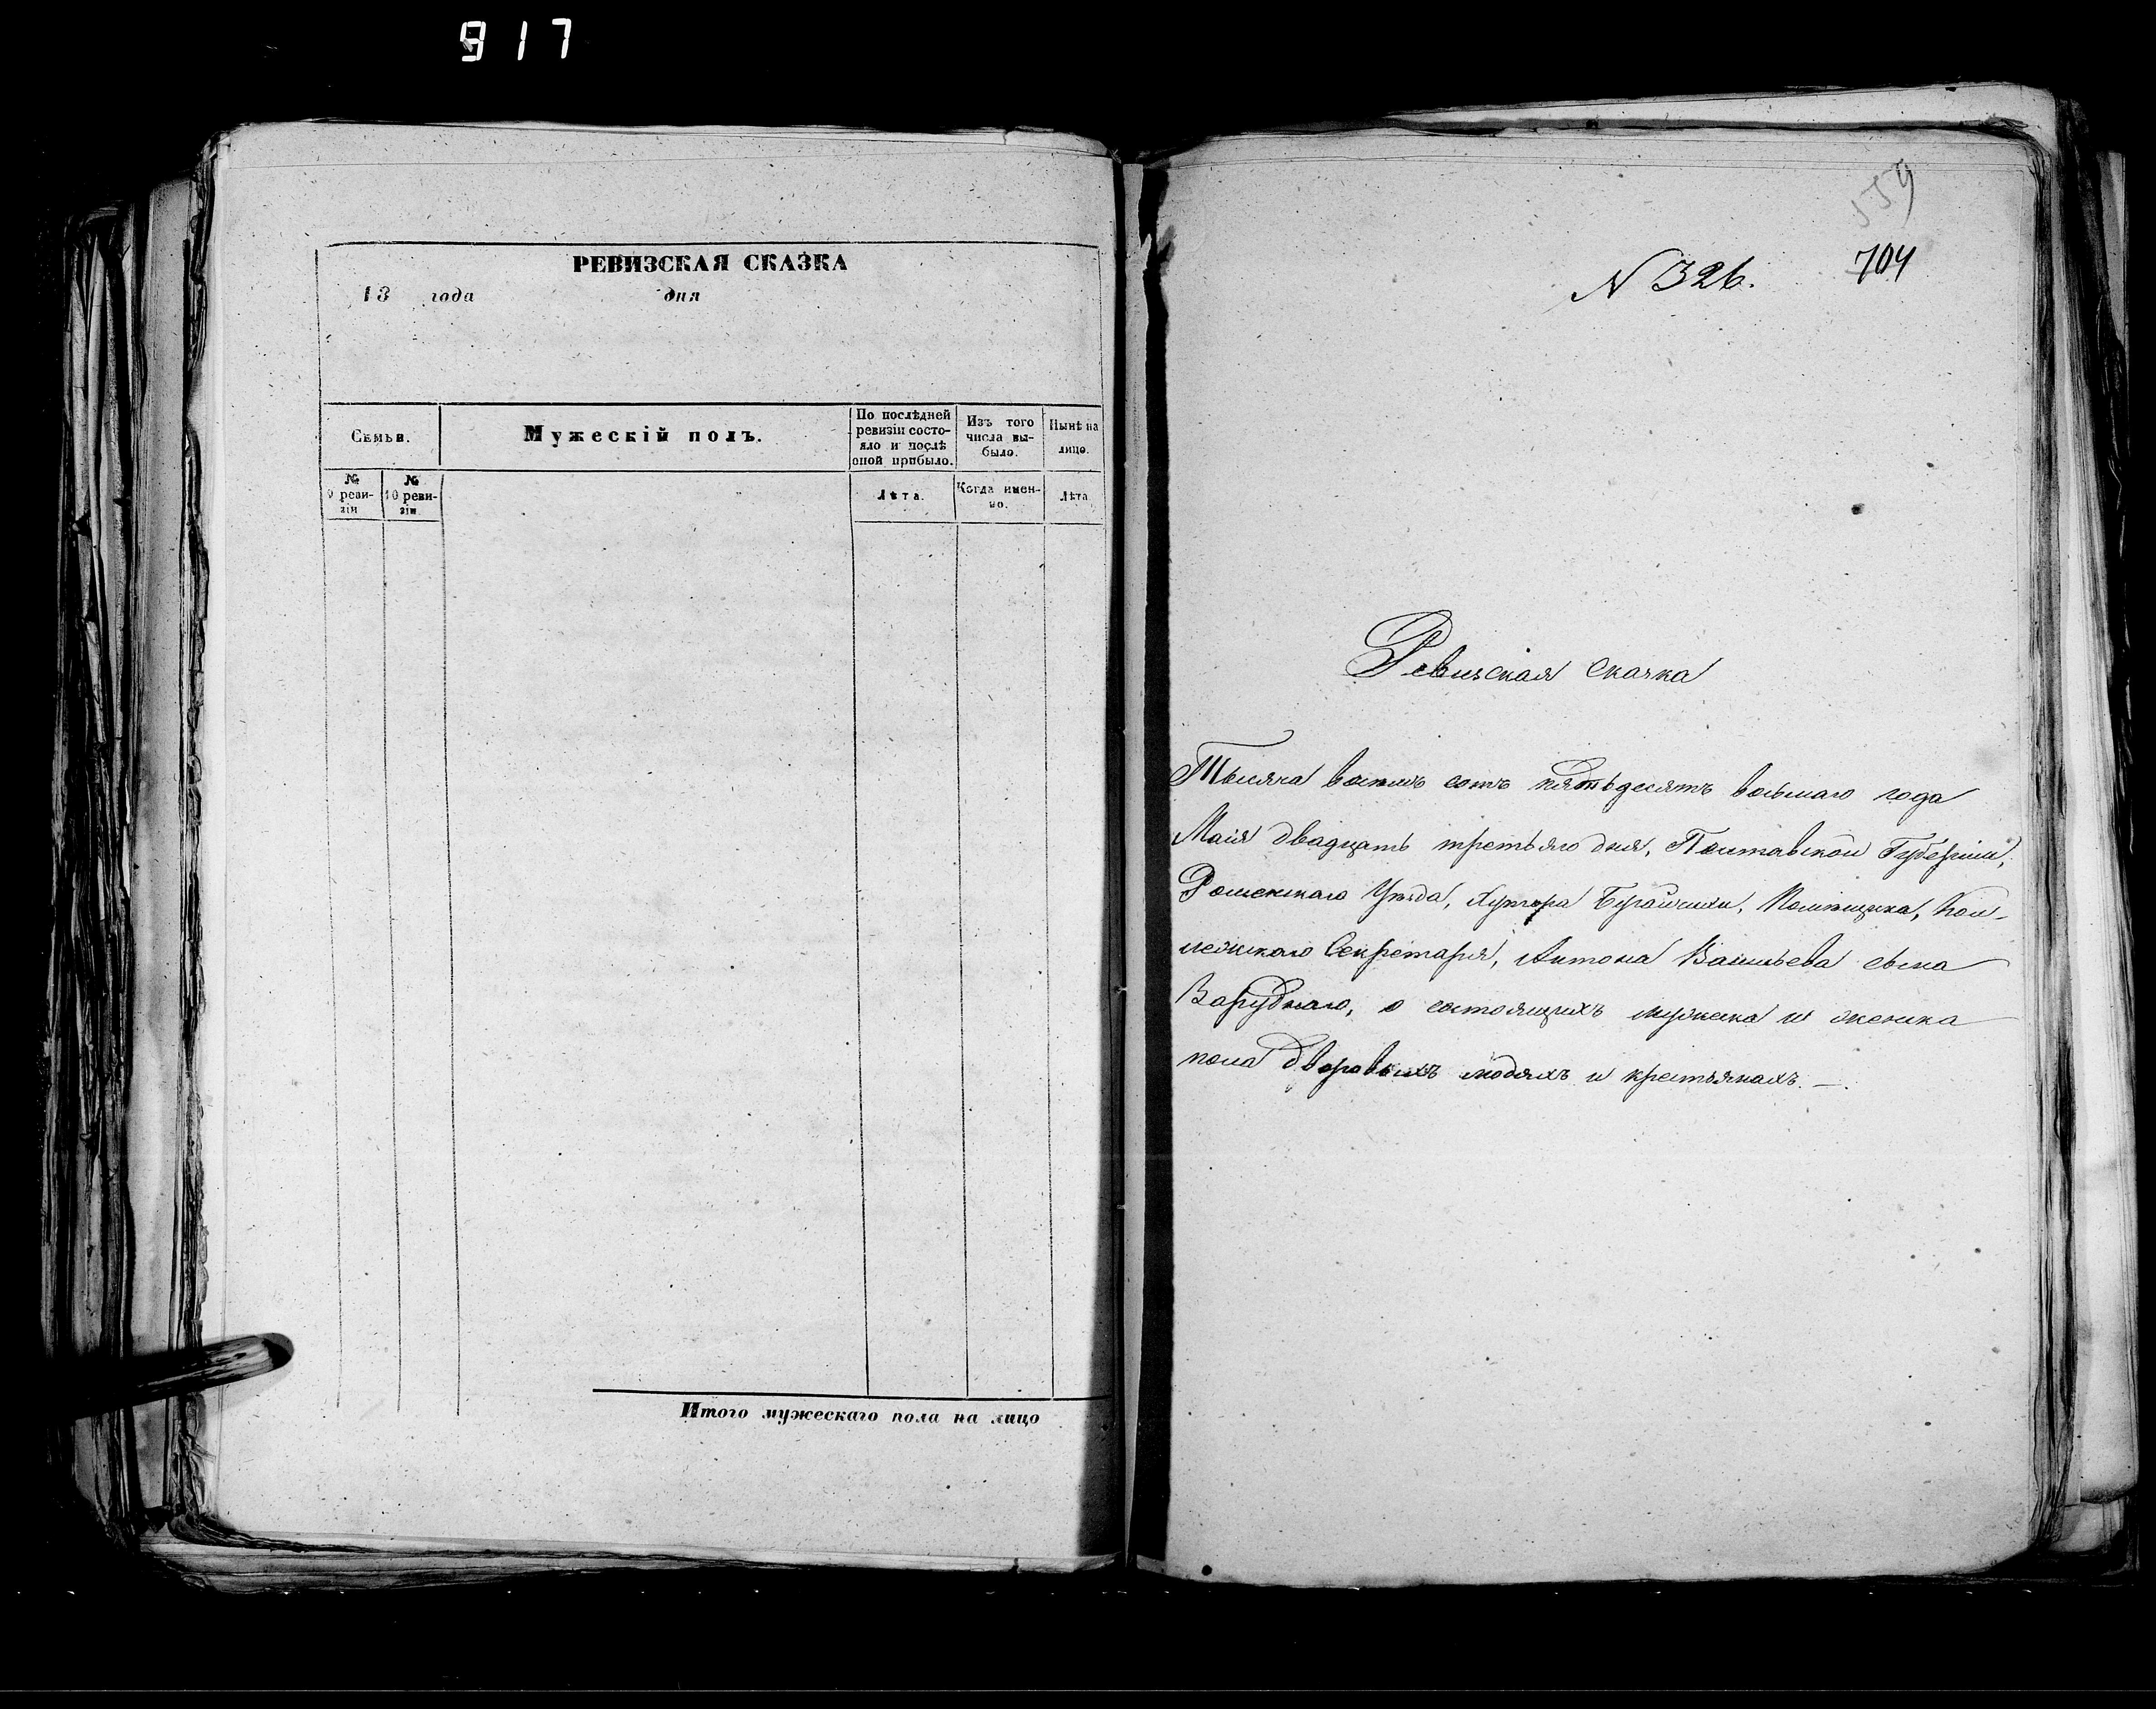 917
РЕВИЗСКАЯ СКАЗКА
18 года дня
Семьи.
Мужескій полъ.
По послѣдней ревизіи состояло и послѣ оной прибыло.
Изъ того числа выбыло.
Нынѣ на лицо.
№ 9 ревизіи
№ 10 ревизіи
Лѣта.
Когда именно.
Лѣта
Итого мужескаго пола на лицо
559
N 326. 704
Ревизская сказка
Тысяча восемь сотъ пятьдесятъ восьмаго года
Маія двадцать третьяго дня, Полтавской Губерніи,
Роменскаго Уѣзда, Хутора Помѣщика, Кол-
лежскаго Секретаря, Антона Васильева сына
Заруднаго, о состоящихъ мужеска и женска
пола дворовыхъ людяхъ и крестьянахъ. —.